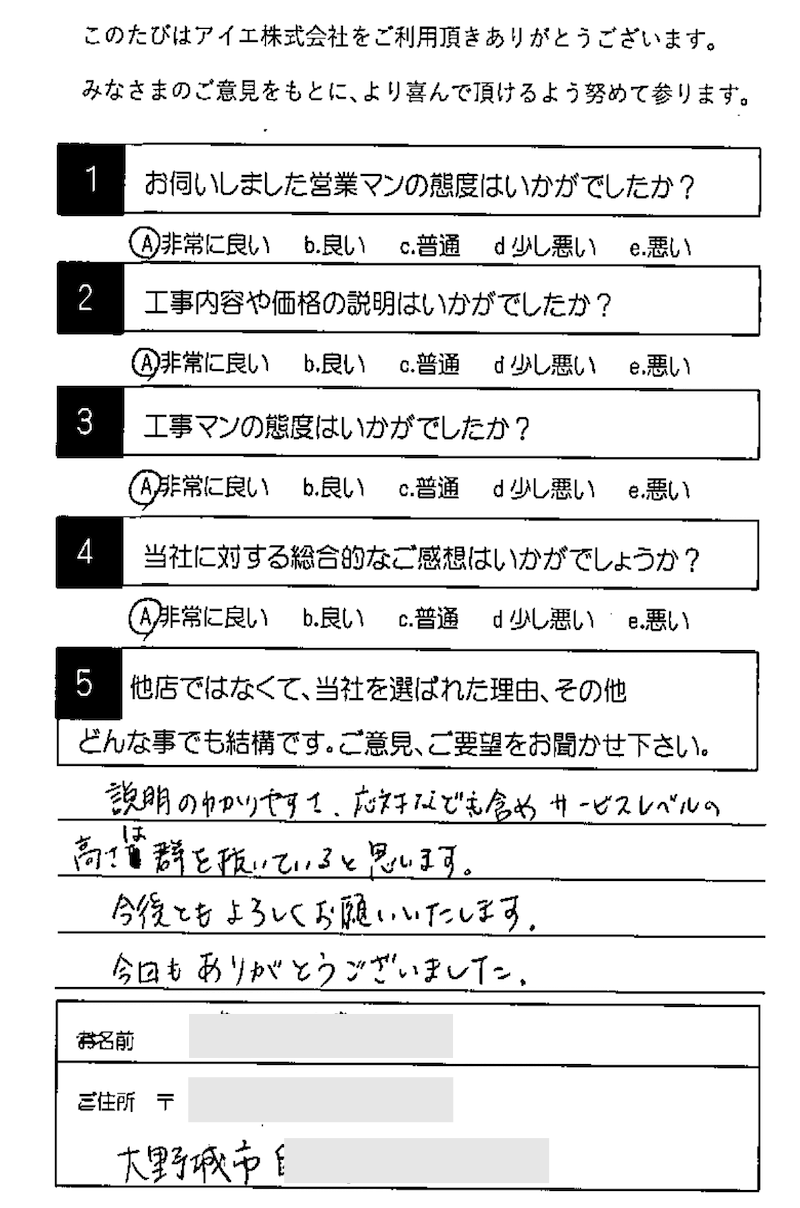 このたびはアイエ株式会社をご利用頂きありがとうございます。
みなさまのご意見をもとに、より喜んで頂けるよう努めて参ります。
1 お伺いしました営業マンの態度はいかがでしたか?
A非常に良い b.良い c.普通 d 少し悪い e.悪い
2 工事内容や価格の説明はいかがでしたか?
A非常に良い b.良い c.普通 d 少し悪い e.悪い
3 工事マンの態度はいかがでしたか?
A非常に良い b.良い c.普通 d 少し悪い e.悪い
4 当社に対する総合的なご感想はいかがでしょうか?
A非常に良い b.良い c.普通 d 少し悪い e.悪い
5 他店ではなくて、当社を選ばれた理由、その他
どんな事でも結構です。ご意見、ご要望をお聞かせ下さい。
説明のわかりやすさ、応対なども含めサービスレベルの
高さは群を抜いていると思います。
今後ともよろしくお願いいたします。
今回もありがとうございました。
お名前
ご住所 〒
大野城市